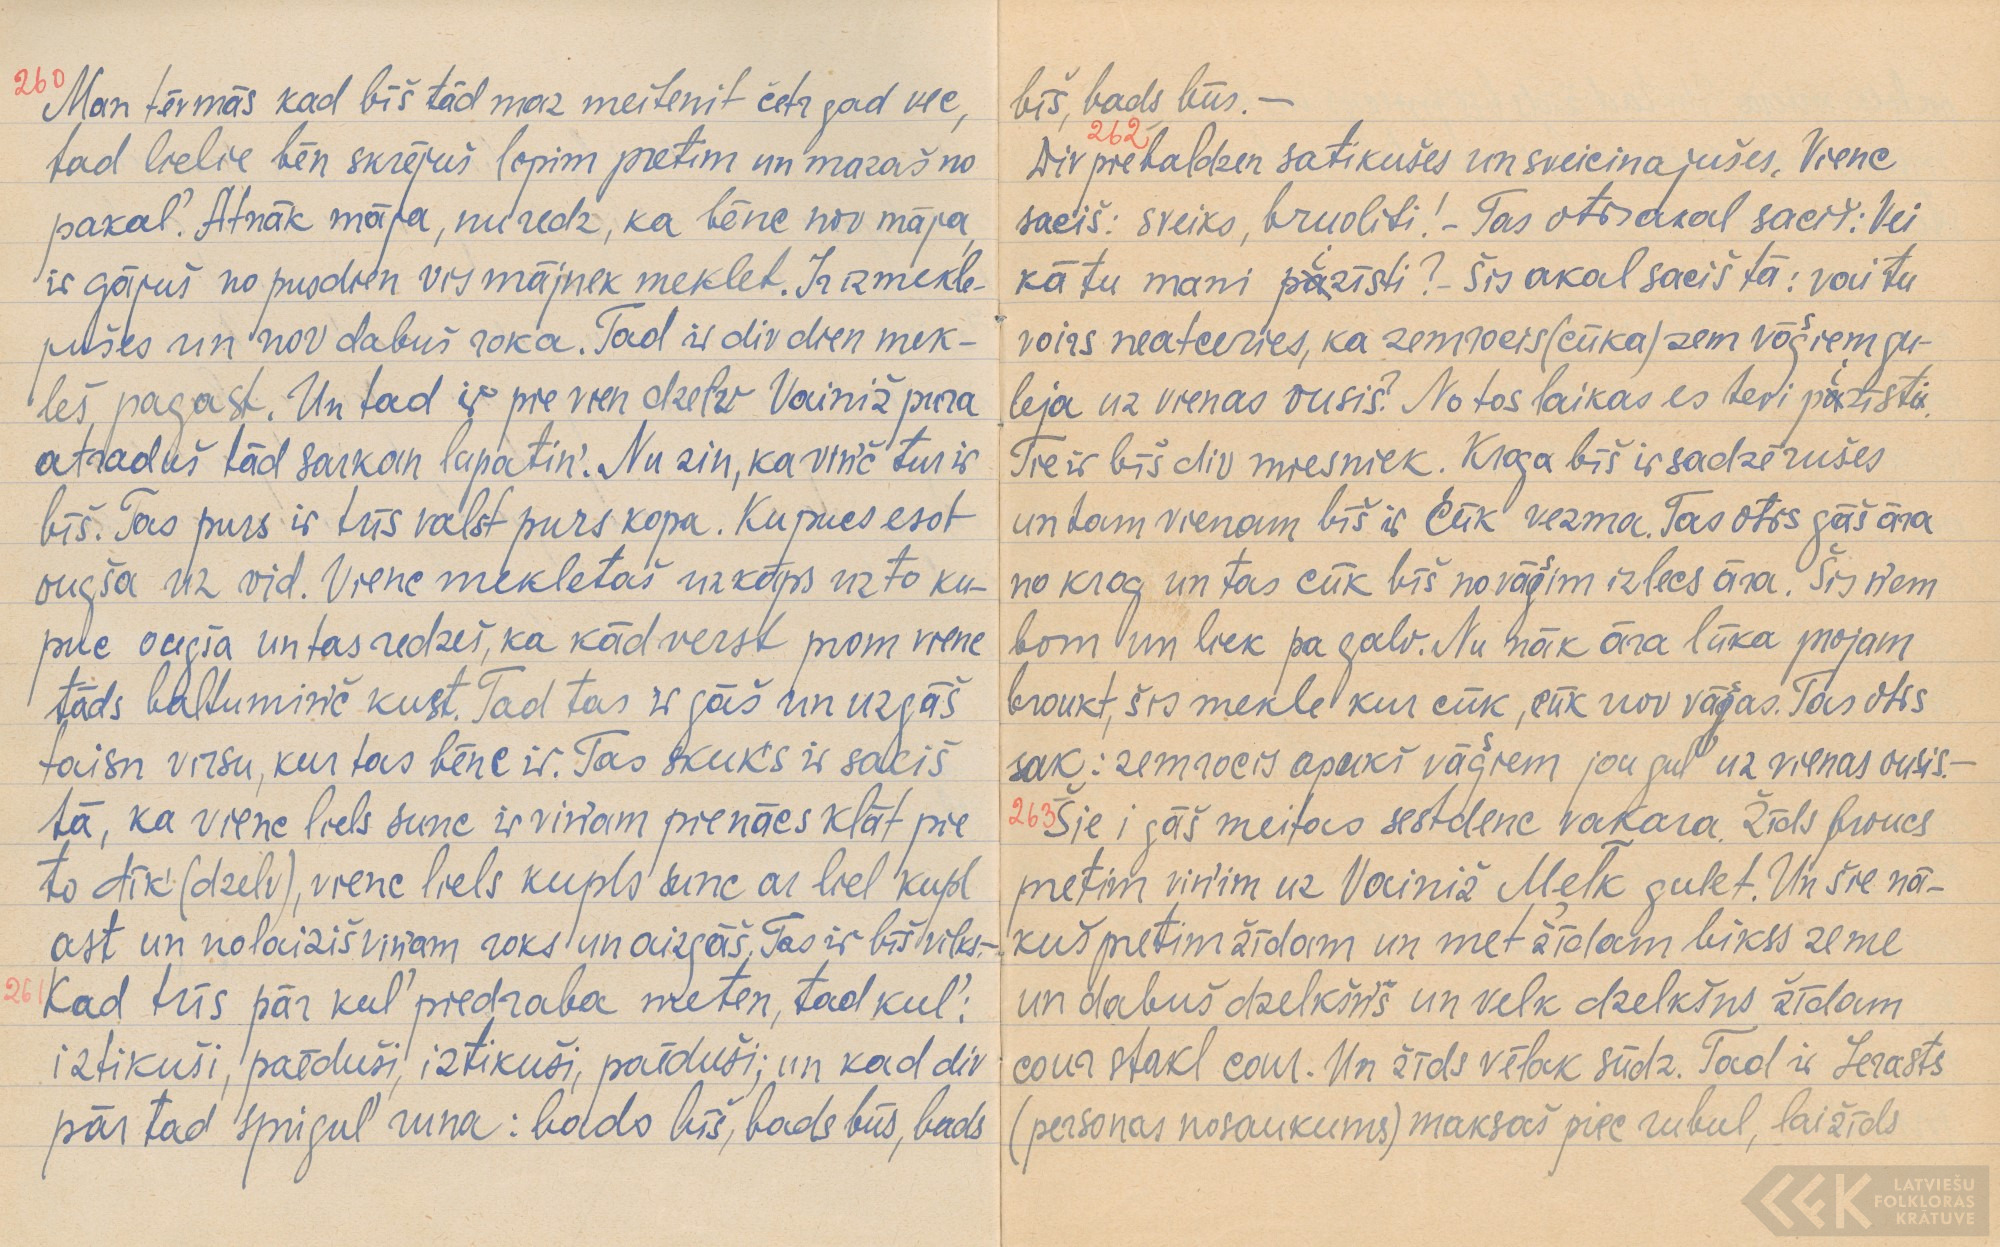 260
Man tēvmās kad bīš tād maz meitenit četr gad vec,
tad lielie bēn skrējuš lopim pretim un mazaš no
pakaļ. Atnāk māja, nu redz, ka bēnc nov māja,
ir gājuš no pusdien vis mājnek meklet. Ir izmekle-
jušes un nov dabuš roka. Tad ir div dien mek-
leš, pagast. Un tad ir pie vien dzelv Vainiž pura
atraduš tād sarkan lapatiņ. Nu zin, ka viņč tur ir
bīš. Tas purs ir trīs valst purs kopa. Kupucs esot
ougša uz vid. Vienc mekletaš uzkāps uz to ku-
puc ougša un tas redzeš, ka kād verst prom vienc
tāds baltumiņč kust. Tad tas ir gāš un uzgāš
taisn virsu, kur tas bēnc ir. Tas skuķs ir saciš
tā, ka vienc liels sunc ir viņam pienācs klāt pie
to dīķ (dzelv), vienc liels kupls sunc ar liel kupl
ast un nolaiziš viņam roks un aizgāš. Tas ir bīš vilks.-
261
Kad trīs pār kuļ piedraba meten, tad kuļ:
iztikuši, paēduši, iztikuši, paēduši; un kad div
pār tad spriguļ runa: bads bīš, bads būs, bads
bīš, bads būs. —
262
Div prebaldzen satikušes un sveicinajušes. Vienc
saciš: sveiks, bruoliti! - Tas otrs akal saciš: Vei
kā tu mani pizīsti? - Šis akal saciš tā: vai tu
voirs neatceries, ka zemrocis (cūka) zem vāšiem gu-
leja uz vienas ousis? No tos laikas es tevi pizīsti.
Tie ir bīš div miesniek. Kroga bīš ir sadzērušes
un tam vienam bīš ir cūk vezma. Tas otrs gāš āra
no krog un tas cūk bīš no vāšim izlecs āra. Šis ņem
bom un liek pa galv. Nu nāk āra lūka projam
broukt, šis mekle kur cūk, cūk nov vāšas. Tas otrs
sak: zemrocis apakš vāšiem jou guļ uz vienas ousis.—
263
Šie i gāš meitas sestdenc vakara. Žīds broucs
pretim viņim uz Vainiž Melķ gulet. Un šie nā-
kuš pretim žīdam un met žīdam bikss zeme
un dabuš dzelkšņš un velk dzelkšns žīdam
cour stakl cour. Un žīds vēlak sūdz. Tad ir Jerasts
(personas nosaukums) maksaš piec rubuļ, lai žīds
LATVIEŠU
FOLKLORAS
KRĀTUVE